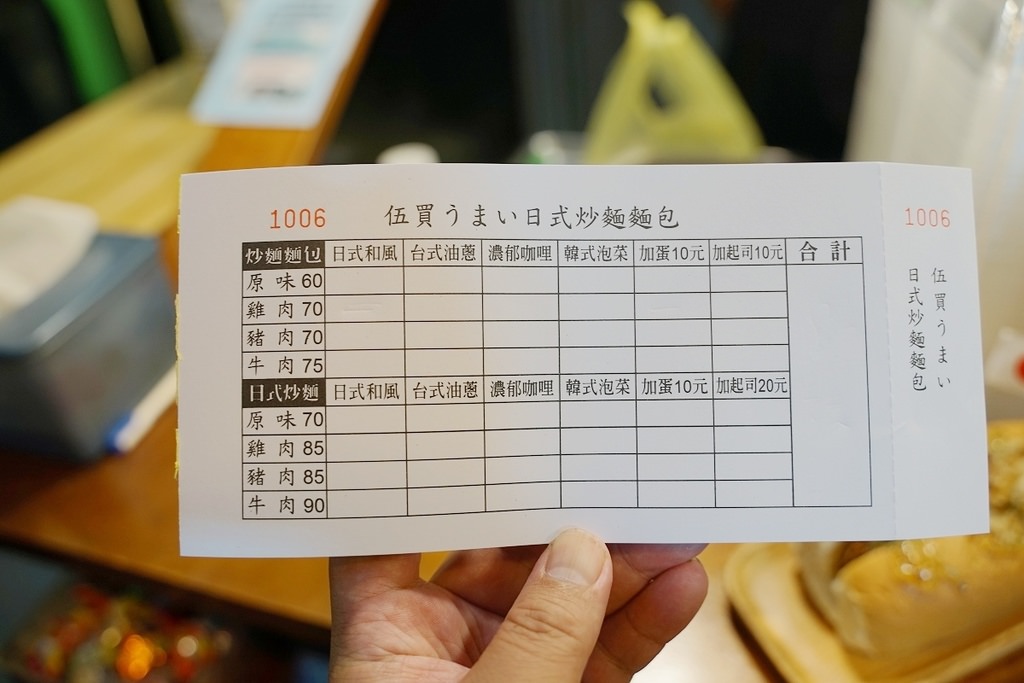 1006 伍買うまい日式炒麵麵包
炒麵麵包 日式和風 台式油蔥 濃郁咖哩 韓式泡菜 加蛋10元 加起司10元 合計
原味 60
雞肉 70
豬肉 70
牛肉 75
日式炒麵 日式和風 台式油蔥 濃郁咖哩 韓式泡菜 加蛋10元 加起司20元
原味 70
雞肉 85
豬肉 85
牛肉 90
1006
伍買うまい
日式炒麵麵包